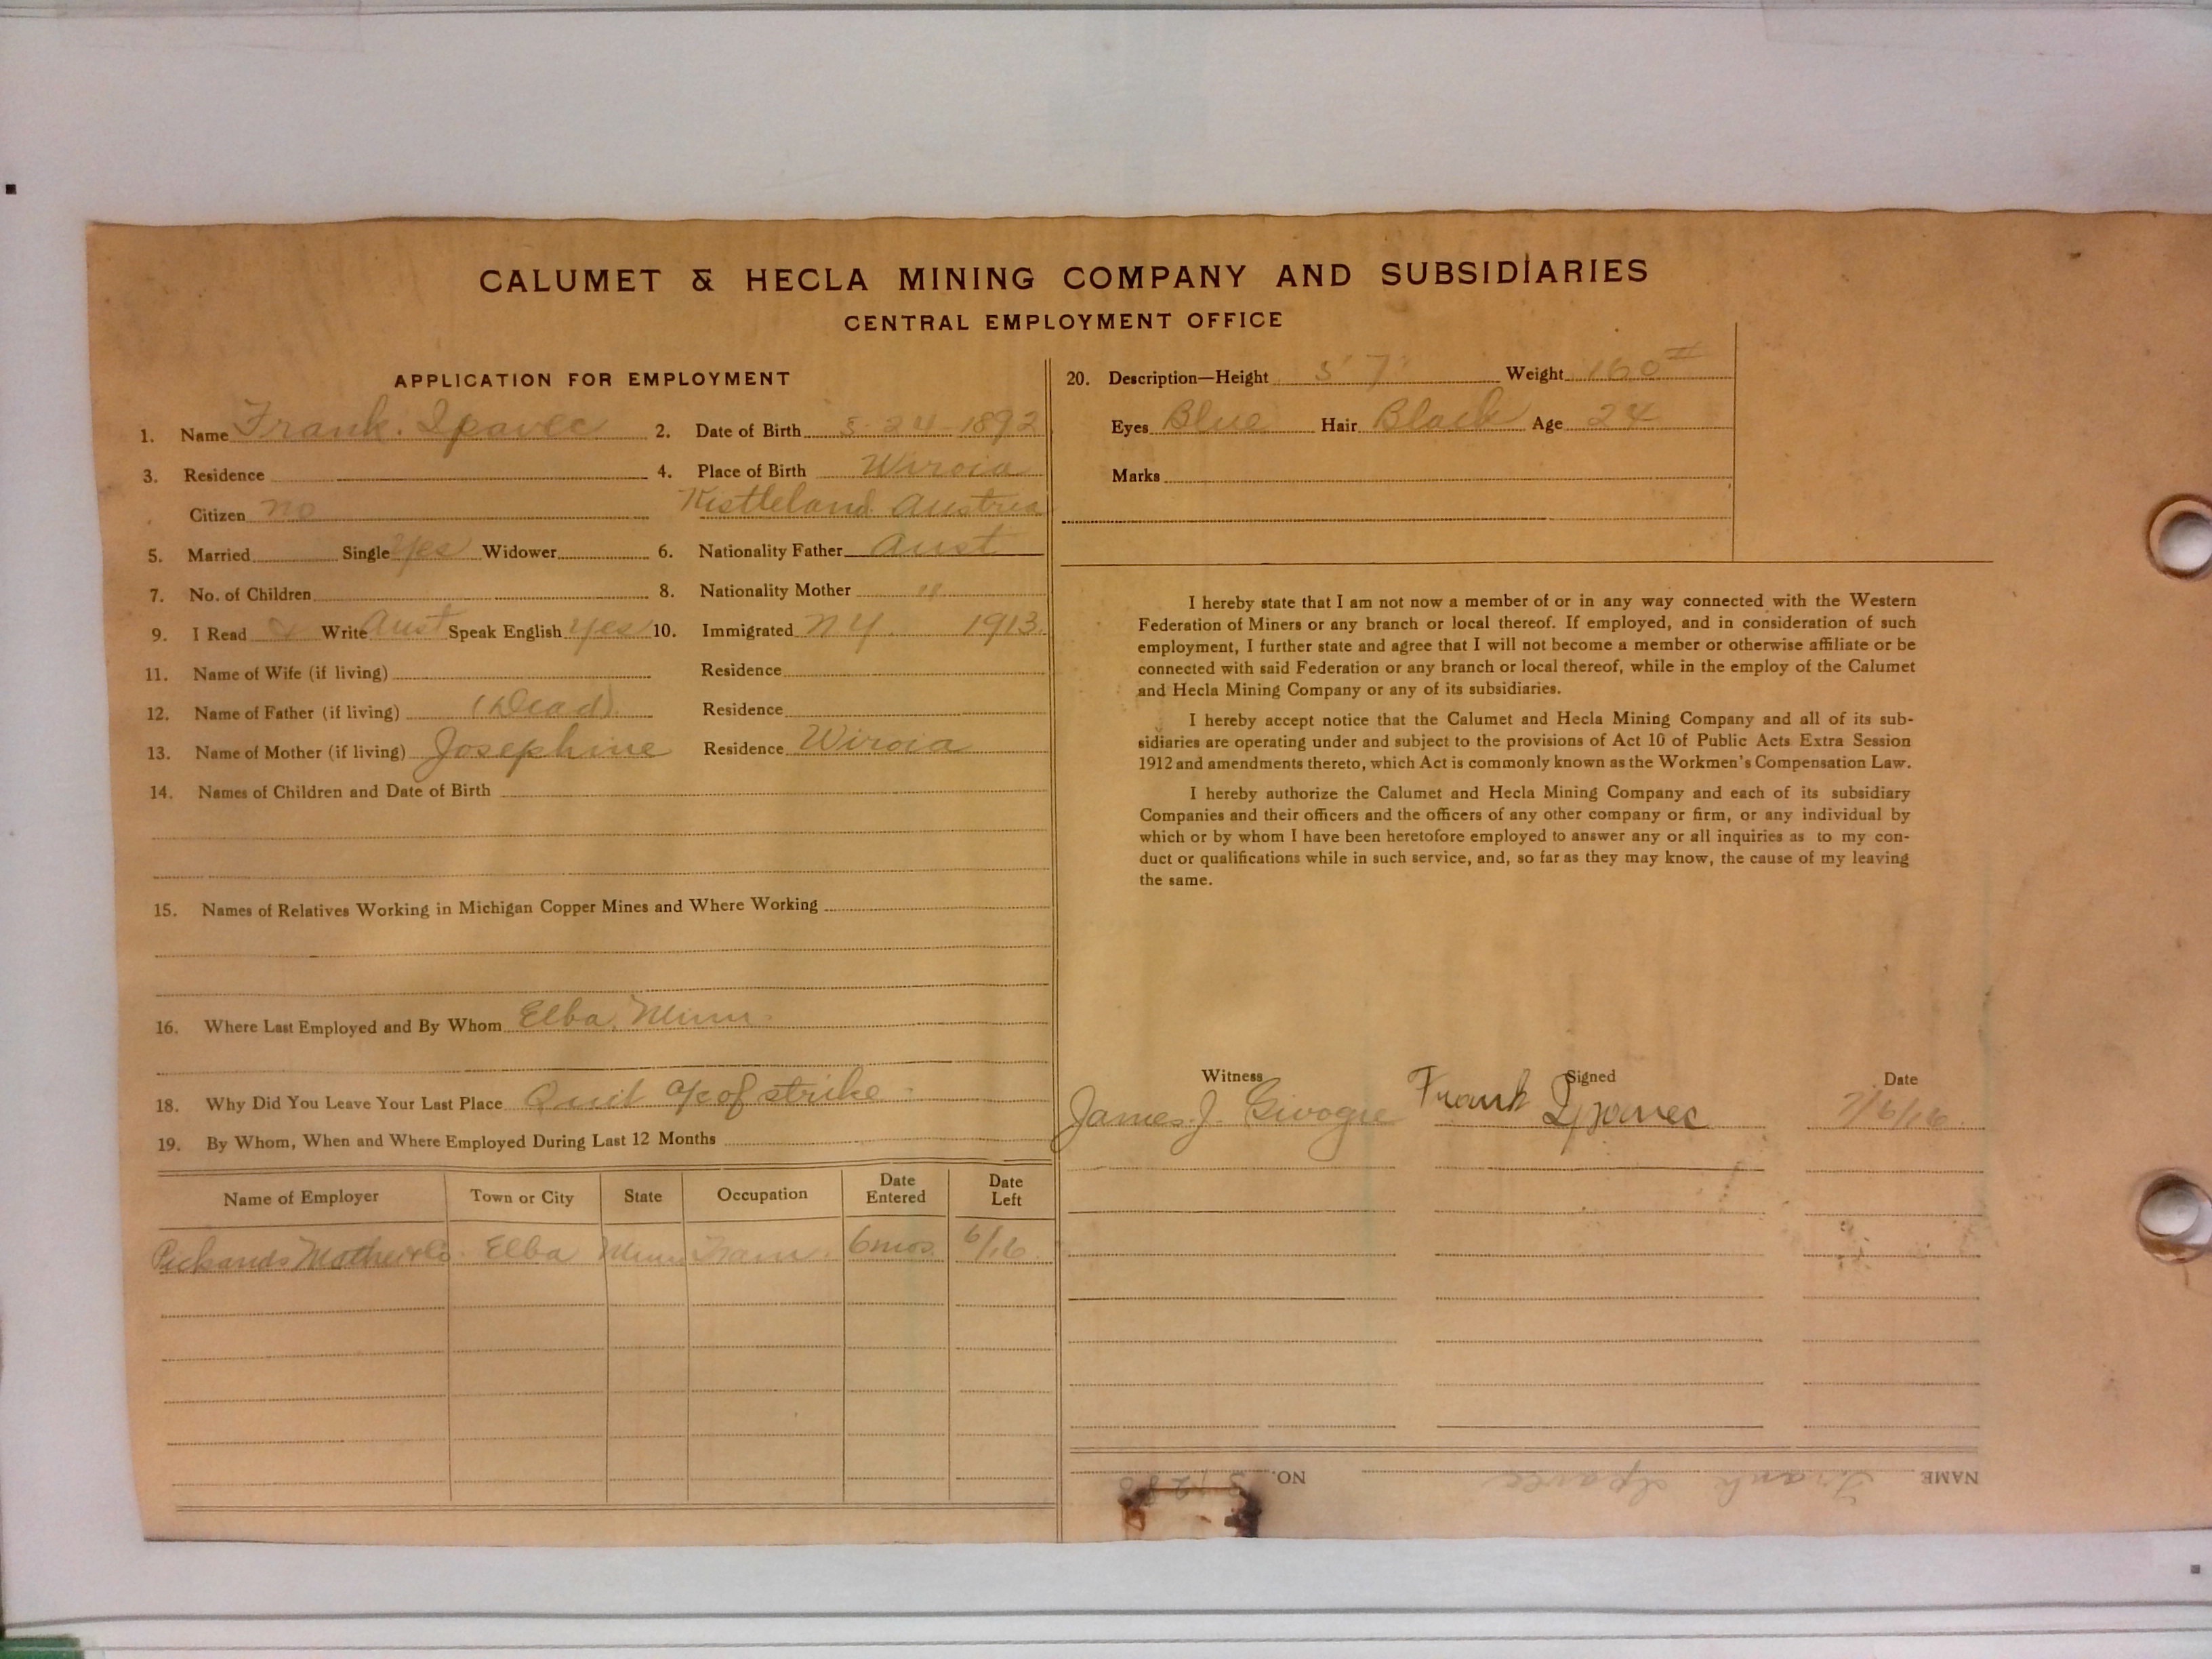 CALUMET & HECLA MINING COMPANY AND SUBSIDIARIES
CENTRAL EMPLOYMENT OFFICE
APPLICATION FOR EMPLOYMENT
1. Name Frank Ipavec 2. Date of Birth 5-24-1892
3. Residence 4. Place of Birth Wiroia
Citizen no Kistleland Austria
5. Married Single Yes Widower 6. Nationality Father Aust
7. No. of Children 8. Nationality Mother "
9. I Read & Write Aust Speak English Yes 10. Immigrated N Y. 1913
11. Name of Wife (if living) Residence
12. Name of Father (if living) (Dead) Residence
13. Name of Mother (if living) Josephine Residence Wiroia
14. Names of Children and Date of Birth
15. Names of Relatives Working in Michigan Copper Mines and Where Working
16. Where Last Employed and By Whom Elba, Minn.
18. Why Did You Leave Your Last Place Quit a/c of strike
19. By Whom, When and Where Employed During Last 12 Months
Name of Employer Town or City State Occupation Date Entered Date Left
Pickands Mather & Co. Elba Minn Tram 6 mos. 6/16
20. Description—Height 5' 7" Weight 160#
Eyes Blue Hair Black Age 24
Marks
I hereby state that I am not now a member of or in any way connected with the Western
Federation of Miners or any branch or local thereof. If employed, and in consideration of such
employment, I further state and agree that I will not become a member or otherwise affiliate or be
connected with said Federation or any branch or local thereof, while in the employ of the Calumet
and Hecla Mining Company or any of its subsidiaries.
I hereby accept notice that the Calumet and Hecla Mining Company and all of its sub-
sidiaries are operating under and subject to the provisions of Act 10 of Public Acts Extra Session
1912 and amendments thereto, which Act is commonly known as the Workmen's Compensation Law.
I hereby authorize the Calumet and Hecla Mining Company and each of its subsidiary
Companies and their officers and the officers of any other company or firm, or any individual by
which or by whom I have been heretofore employed to answer any or all inquiries as to my con-
duct or qualifications while in such service, and, so far as they may know, the cause of my leaving
the same.
Witness Signed Date
James J. Frank Ipavec 7/6/16
NAME Frank Ipavec NO.